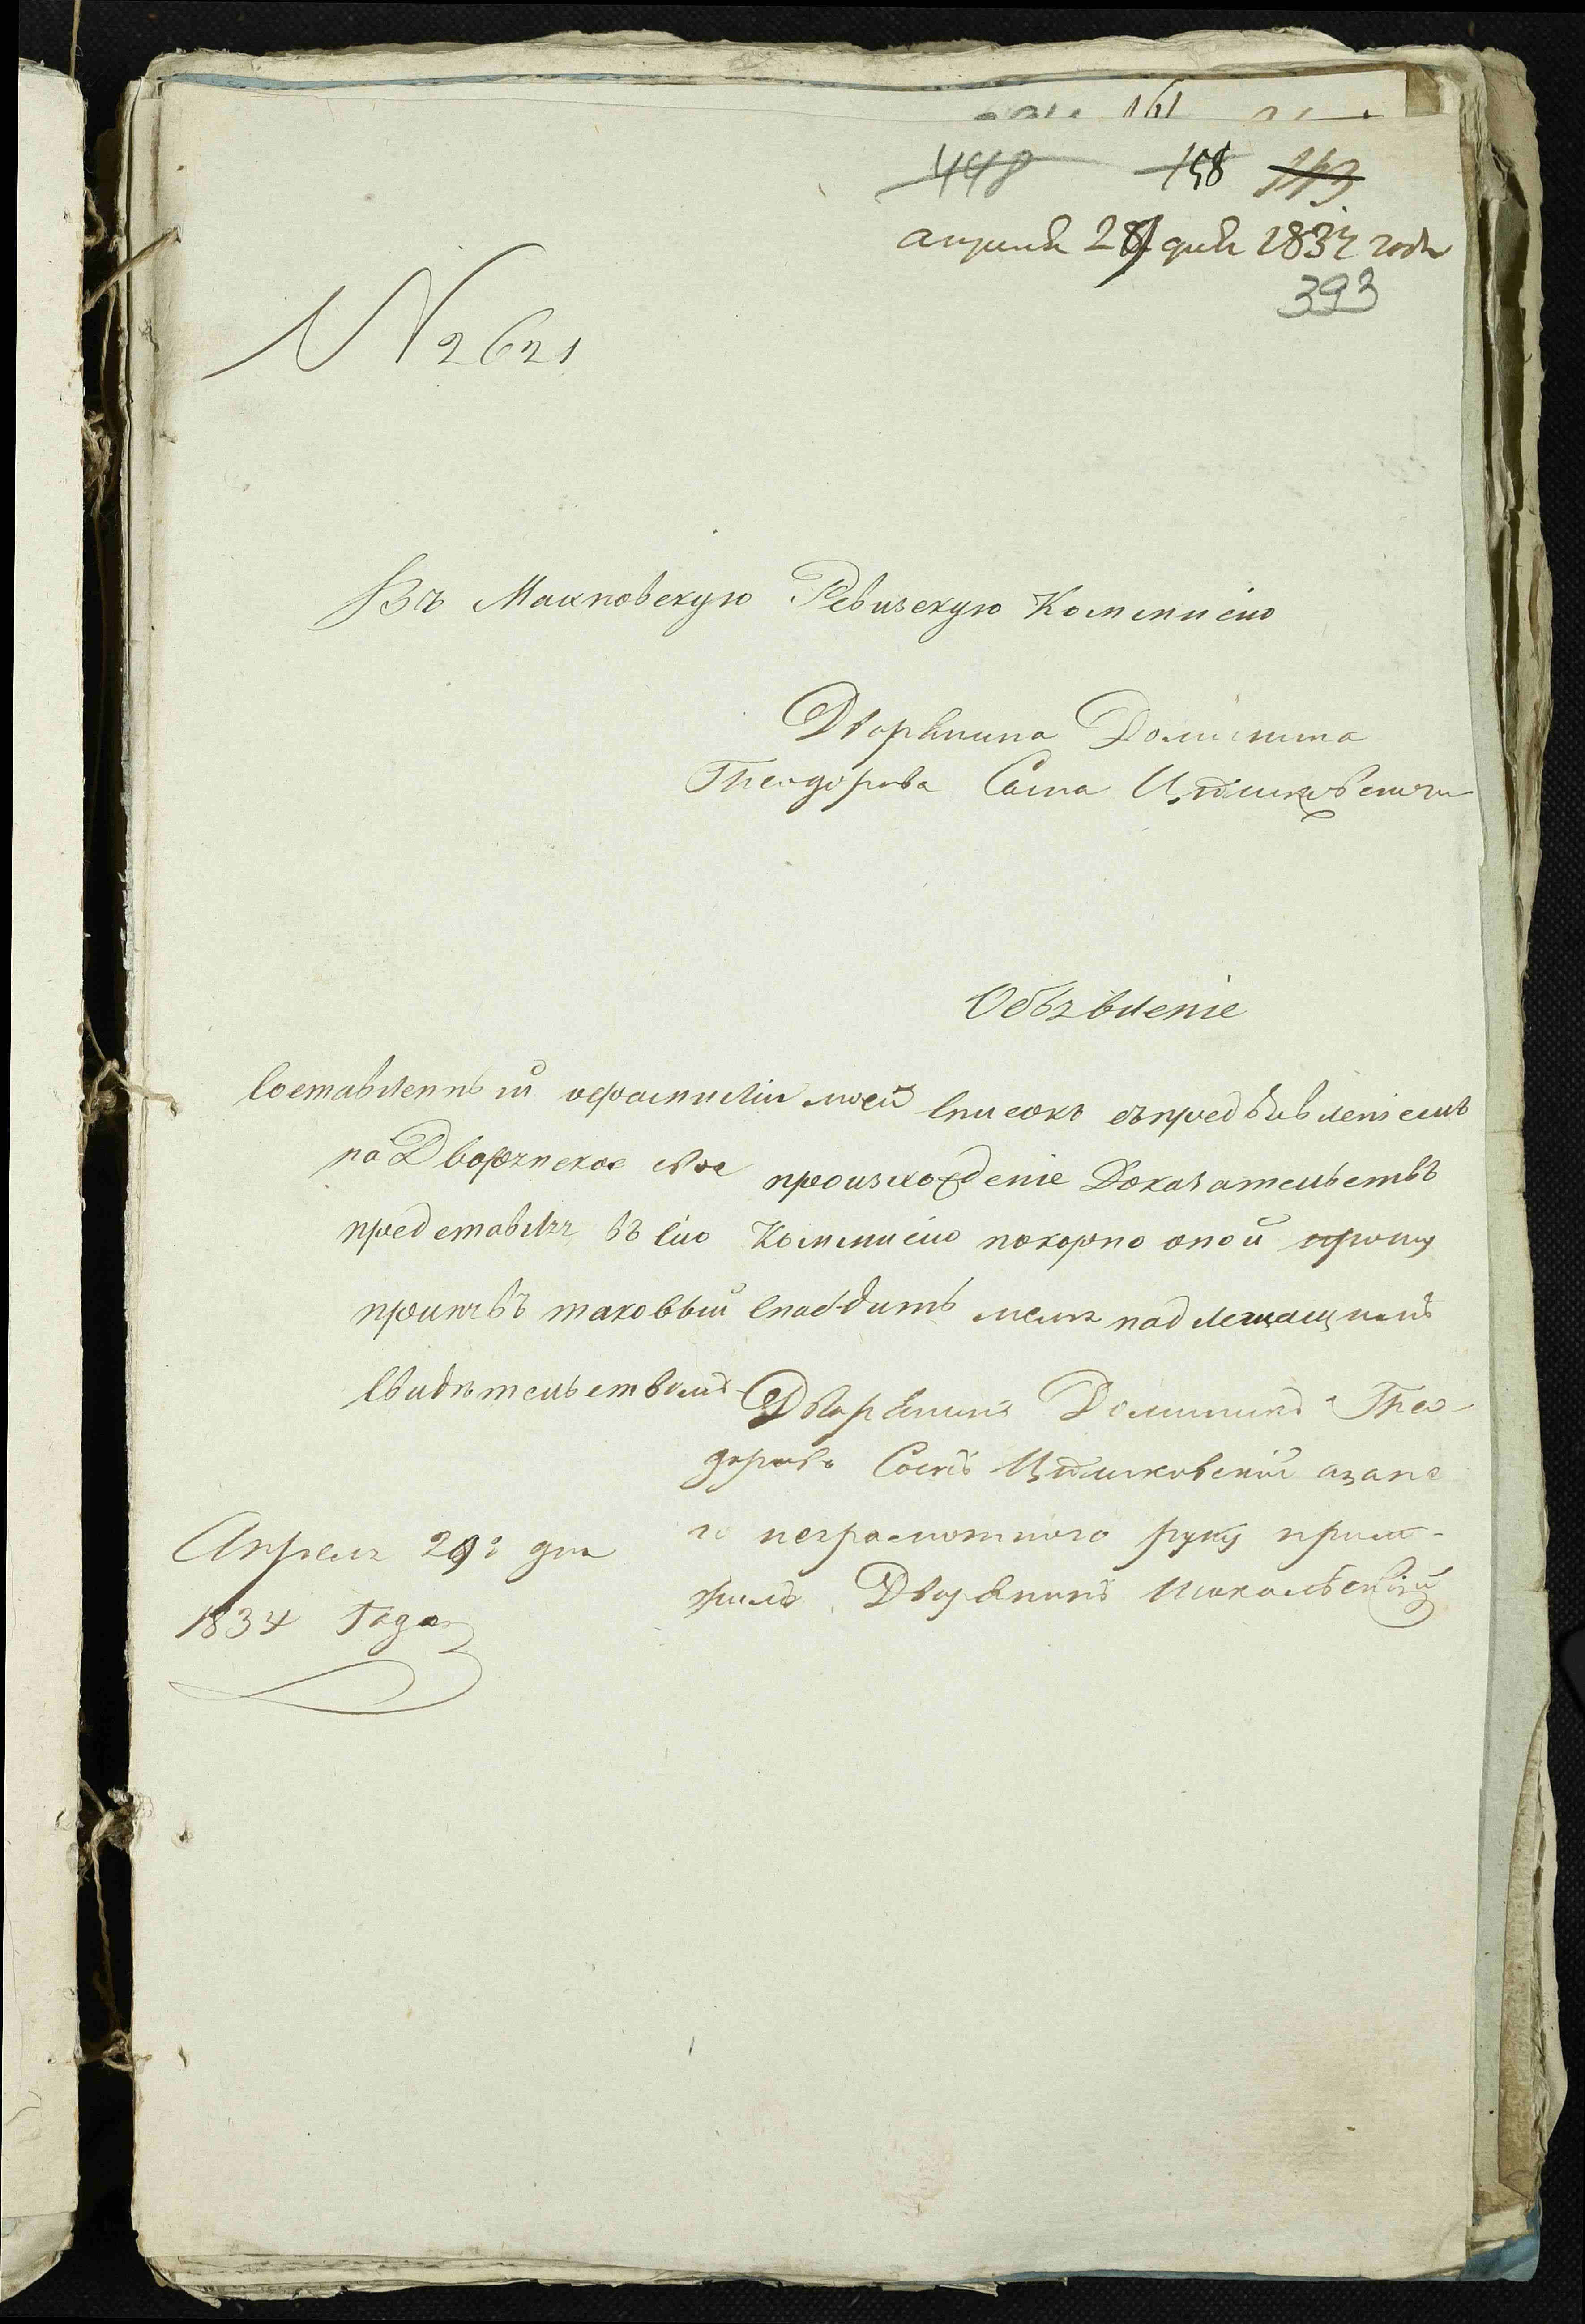 448 158 113
апреля 29 дня 1834 года
393
N 2621
Въ Махновскую Ревизскую Коммисію
Дворянина Доминика
Теодорова Сына
Объявленіе
Составленный офамиліи моей Списокъ съпредъявленіемъ
на Дворянское свое происхожденіе Доказательствъ
представляя въ Сію Коммисію покорно оной прошу
принявъ таковый Снабдить меня надлежащимъ
Свидѣтельствомъ Дворянинъ Доминикъ Тео-
дорова Сынъ азане
го неграмотного руку прило-
жилъ Дворянинъ
Апреля 29: дня
1834 Года